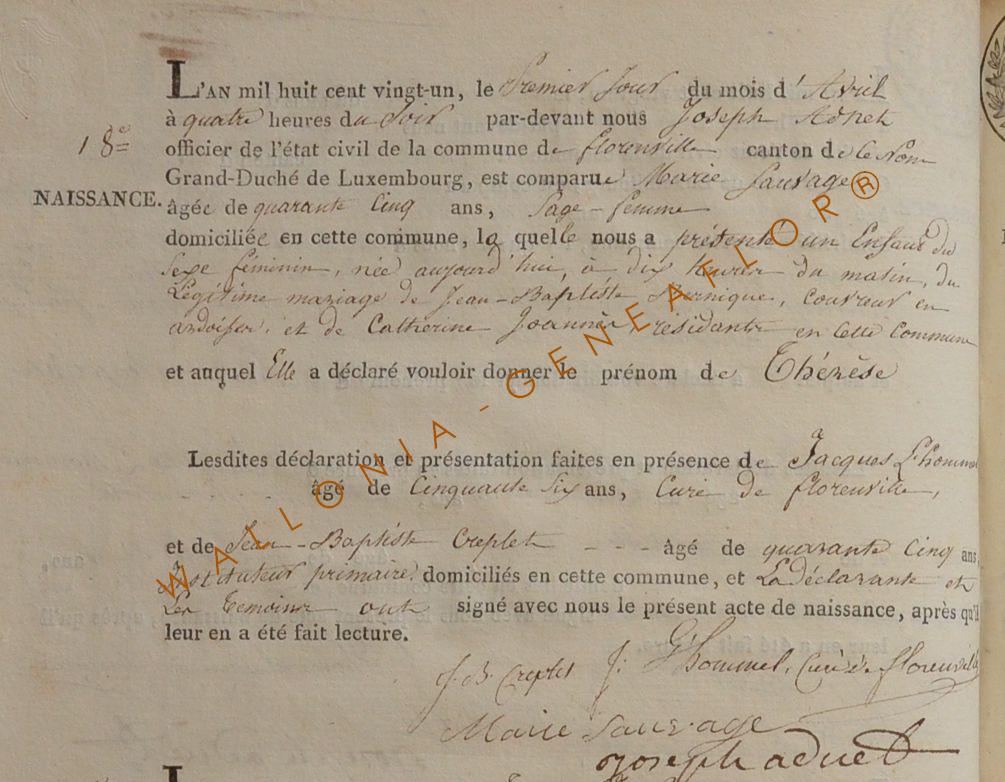 L'AN mil huit cent vingt-un, le Premier Jour du mois d'Avril
à quatre heures du Soir par-devant nous Joseph Adnet
18e officier de l'état civil de la commune de florenville canton de ce Nom
Grand-Duché de Luxembourg, est comparue Marie Sauvage
NAISSANCE. âgée de quarante Cinq ans, Sage-femme
domiciliée en cette commune, la quelle nous a présenté un Enfant du
Sexe féminin, née aujourd'hui, à dix heures du matin, du
Légitime mariage de Jean-Baptiste, Couvreur en
ardoises, et de Catherine Joannès résidants en Cette Commune
et auquel Elle a déclaré vouloir donner le prénom de Thérèse
Lesdites déclaration et présentation faites en présence de Jacques L'hommel
âgé de Cinquante Six ans, Curé de florenville,
et de Jean-Baptiste Creplet - - - âgé de quarante Cinq ans
Instituteur primaire, domiciliés en cette commune, et La déclarante et
Les Temoins ont signé avec nous le présent acte de naissance, après qu'il
leur en a été fait lecture.
J. B. Creplet J: L'hommel, Curé de florenville
Marie Sauvage
Joseph adnet
WALLONIA - GENEAFLOR®